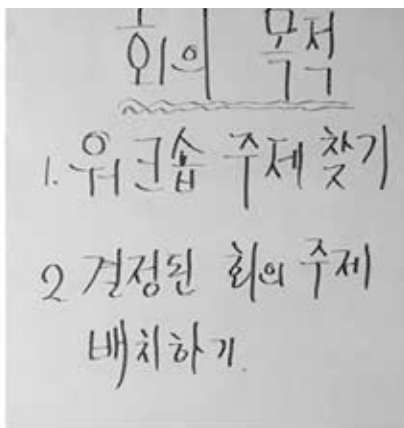 회의 목적
1. 워크숍 주제 찾기
2 결정된 회의 주제
배치하기.